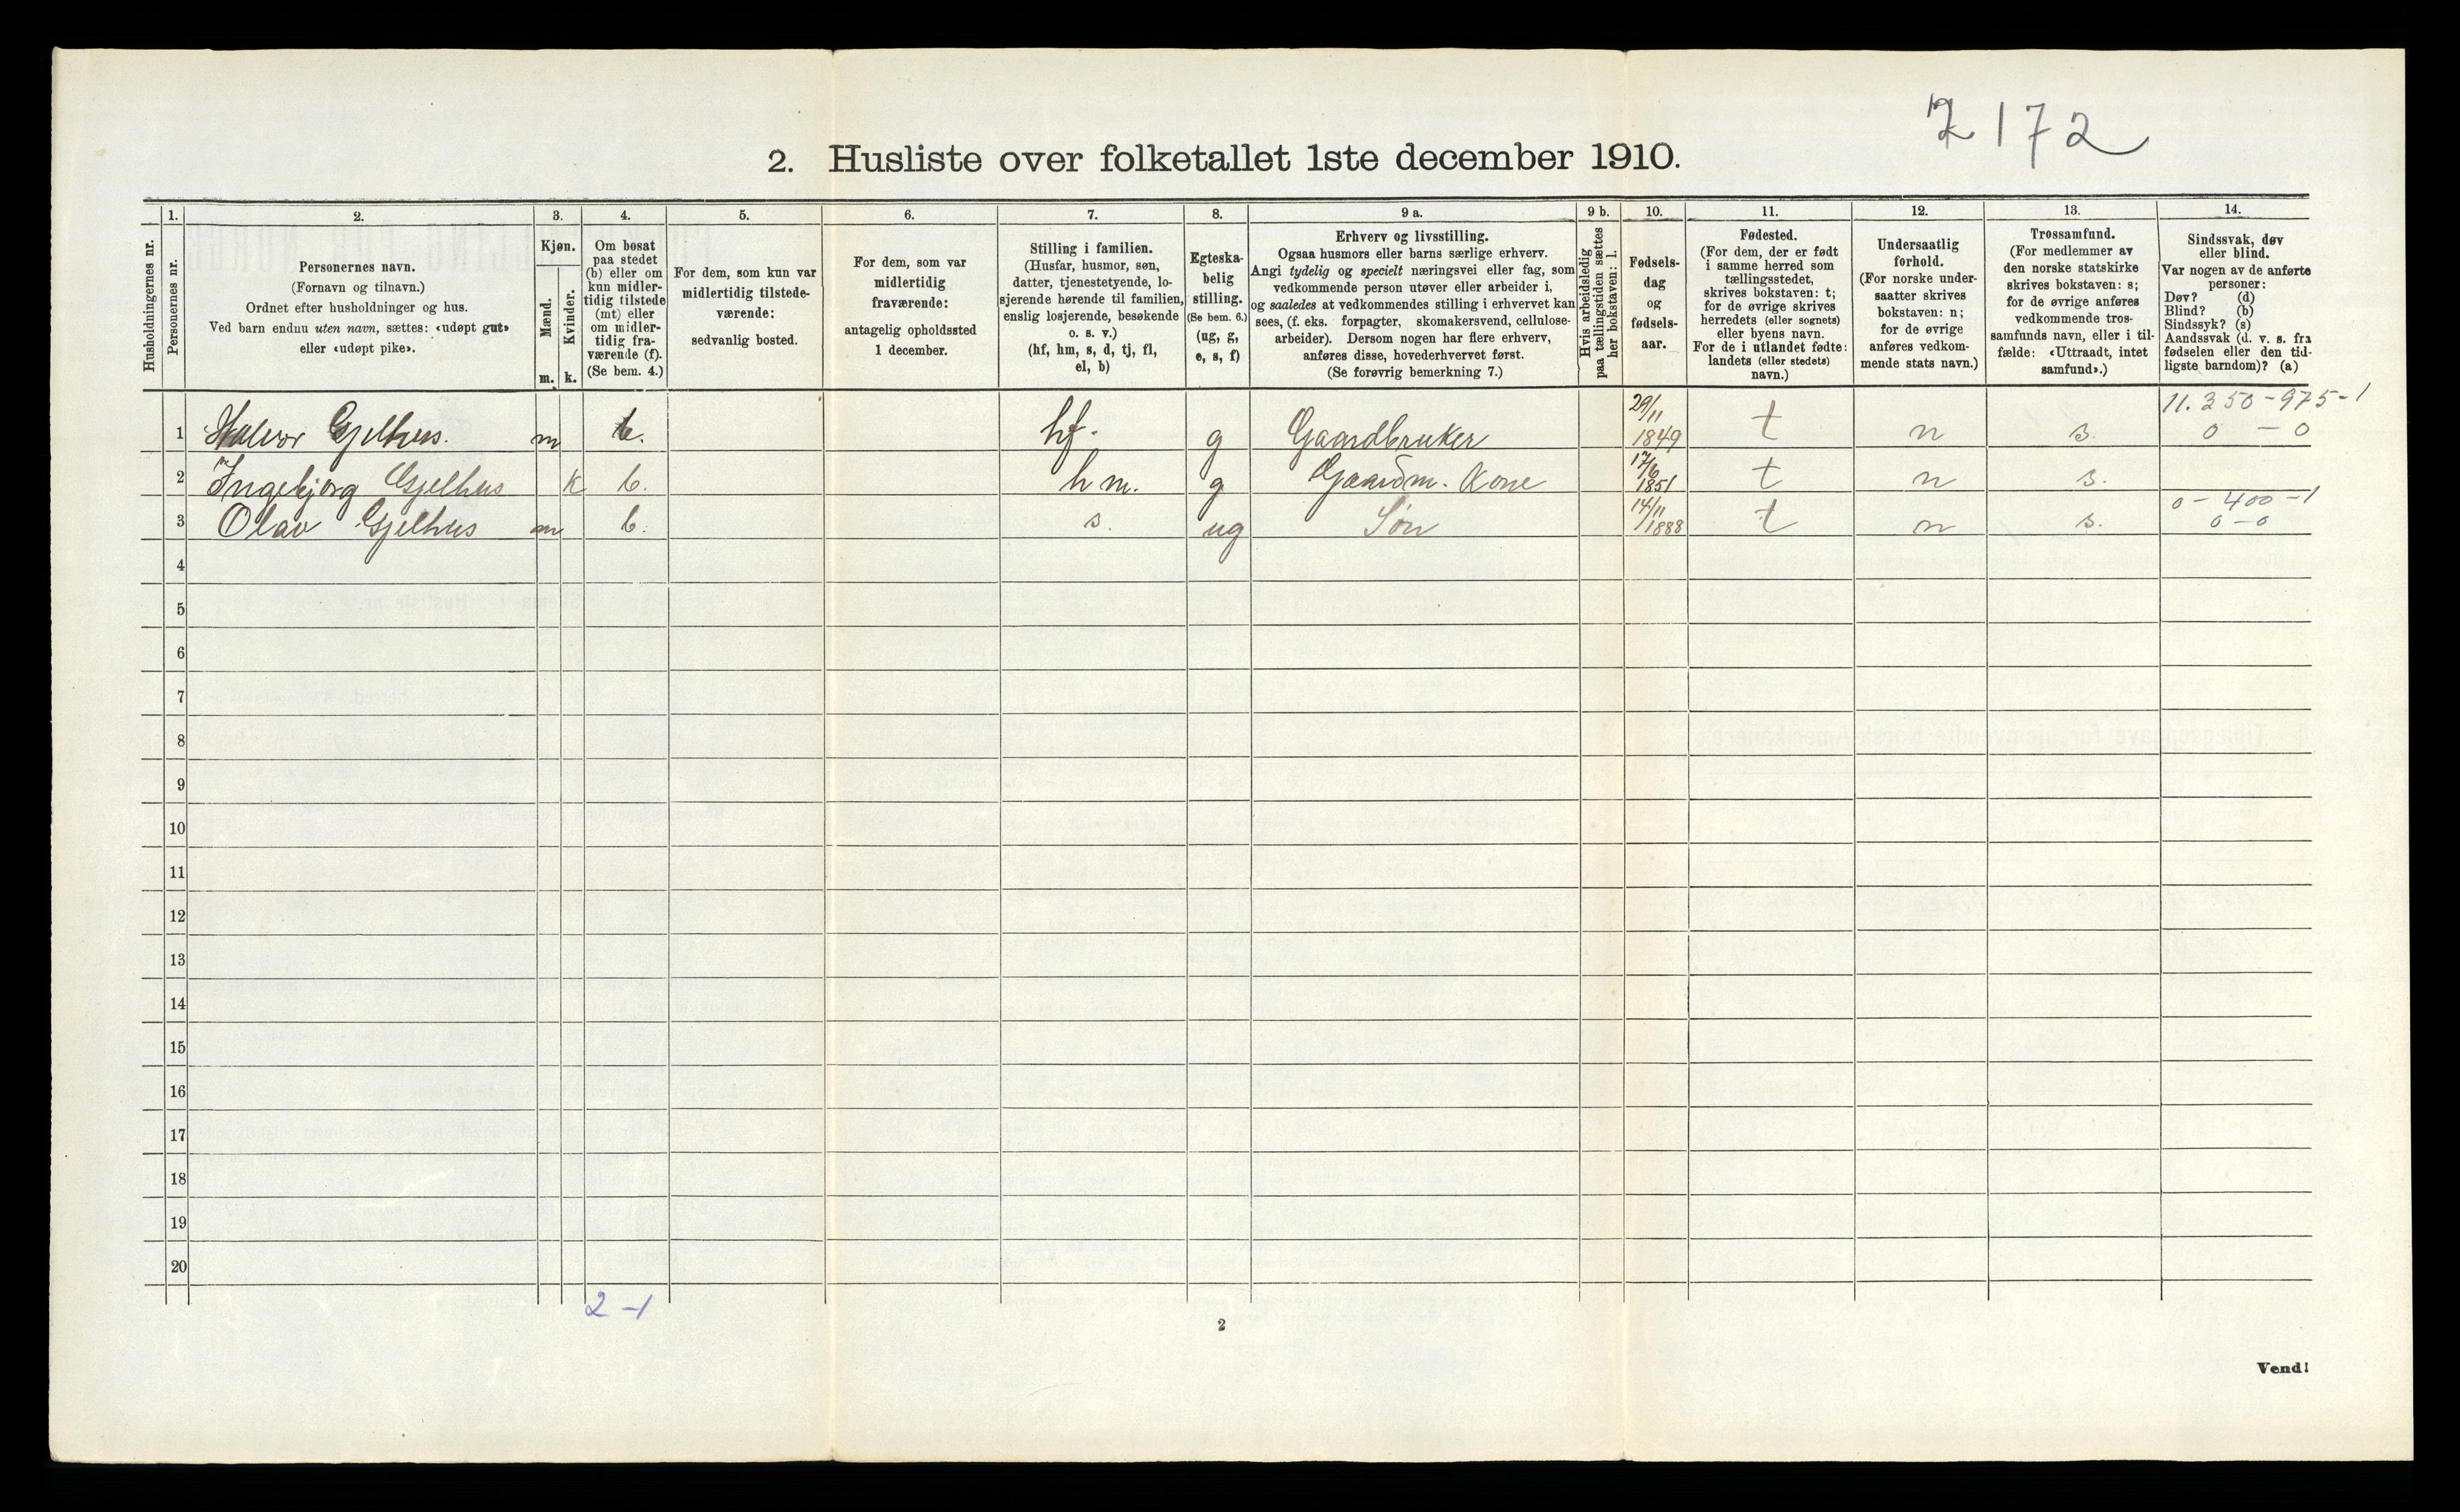 7172
2. Husliste over folketallet 1ste december 1910.
Husholdningernes nr.
1.
Personernes nr.
2.
Personernes navn.
(Fornavn og tilnavn.)
Ordnet efter husholdninger og hus.
Ved barn endnu uten navn, sættes: «udøpt gut»
eller «udøpt pike».
3.
Kjøn.
Mænd.
Kvinder.
m. k.
4.
Om bosat
paa stedet
(b) eller om
kun midler-
tidig tilstede
(mt) eller
om midler-
tidig fra-
værende (f).
(Se bem. 4.)
5.
For dem, som kun var
midlertidig tilstede-
værende:
sedvanlig bosted.
6.
For dem, som var
midlertidig
fraværende:
antagelig opholdssted
1 december.
7.
Stilling i familien.
(Husfar, husmor, søn,
datter, tjenestetyende, lo-
sjerende hørende til familien,
enslig losjerende, besøkende
o. s. v.)
(hf, hm, s, d, tj, fl,
el, b)
8.
Egteska-
belig
stilling.
(Se bem. 6.)
(ug, g,
e, s, f)
9 a.
Erhverv og livsstilling.
Ogsaa husmors eller barns særlige erhverv.
Angi tydelig og specielt næringsvei eller fag, som
vedkommende person utøver eller arbeider i,
og saaledes at vedkommendes stilling i erhvervet kan
sees, (f. eks. forpagter, skomakersvend, cellulose-
arbeider). Dersom nogen har flere erhverv,
anføres disse, hovederhvervet først.
(Se forøvrig bemerkning 7.)
9 b.
Hvis arbeidsledig
paa tællingstiden sættes
her bokstaven: l.
10.
Fødsels-
dag
og
fødsels-
aar.
11.
Fødested.
(For dem, der er født
i samme herred som
tællingsstedet,
skrives bokstaven: t;
for de øvrige skrives
herredets (eller sognets)
eller byens navn.
For de i utlandet fødte:
landets (eller stedets)
navn.)
12.
Undersaatlig
forhold.
(For norske under-
saatter skrives
bokstaven: n;
for de øvrige
anføres vedkom-
mende stats navn.)
13.
Trossamfund.
(For medlemmer av
den norske statskirke
skrives bokstaven: s;
for de øvrige anføres
vedkommende tros-
samfunds navn, eller i til-
fælde: «Uttraadt, intet
samfund».)
14.
Sindssvak, døv
eller blind.
Var nogen av de anførte
personer:
Døv? (d)
Blind? (b)
Sindssyk? (s)
Aandssvak (d. v. s. fra
fødselen eller den tid-
ligste barndom)? (a)
11. 350-975-1
1 Halvor Gjelhus. m b. hf. g Gaardbruker 29/11 1849 t n s. 0 - 0
2 Ingebjørg Gjelhus k b. hm. g Gaardm. Kone 17/6 1851 t n s.
0-400-1
3 Olav Gjelhus m b. s. ug Søn 14/11 1888 t n s. 0-0
4
5
6
7
8
9
10
11
12
13
14
15
16
17
18
19
20
2-1
2
Vend!